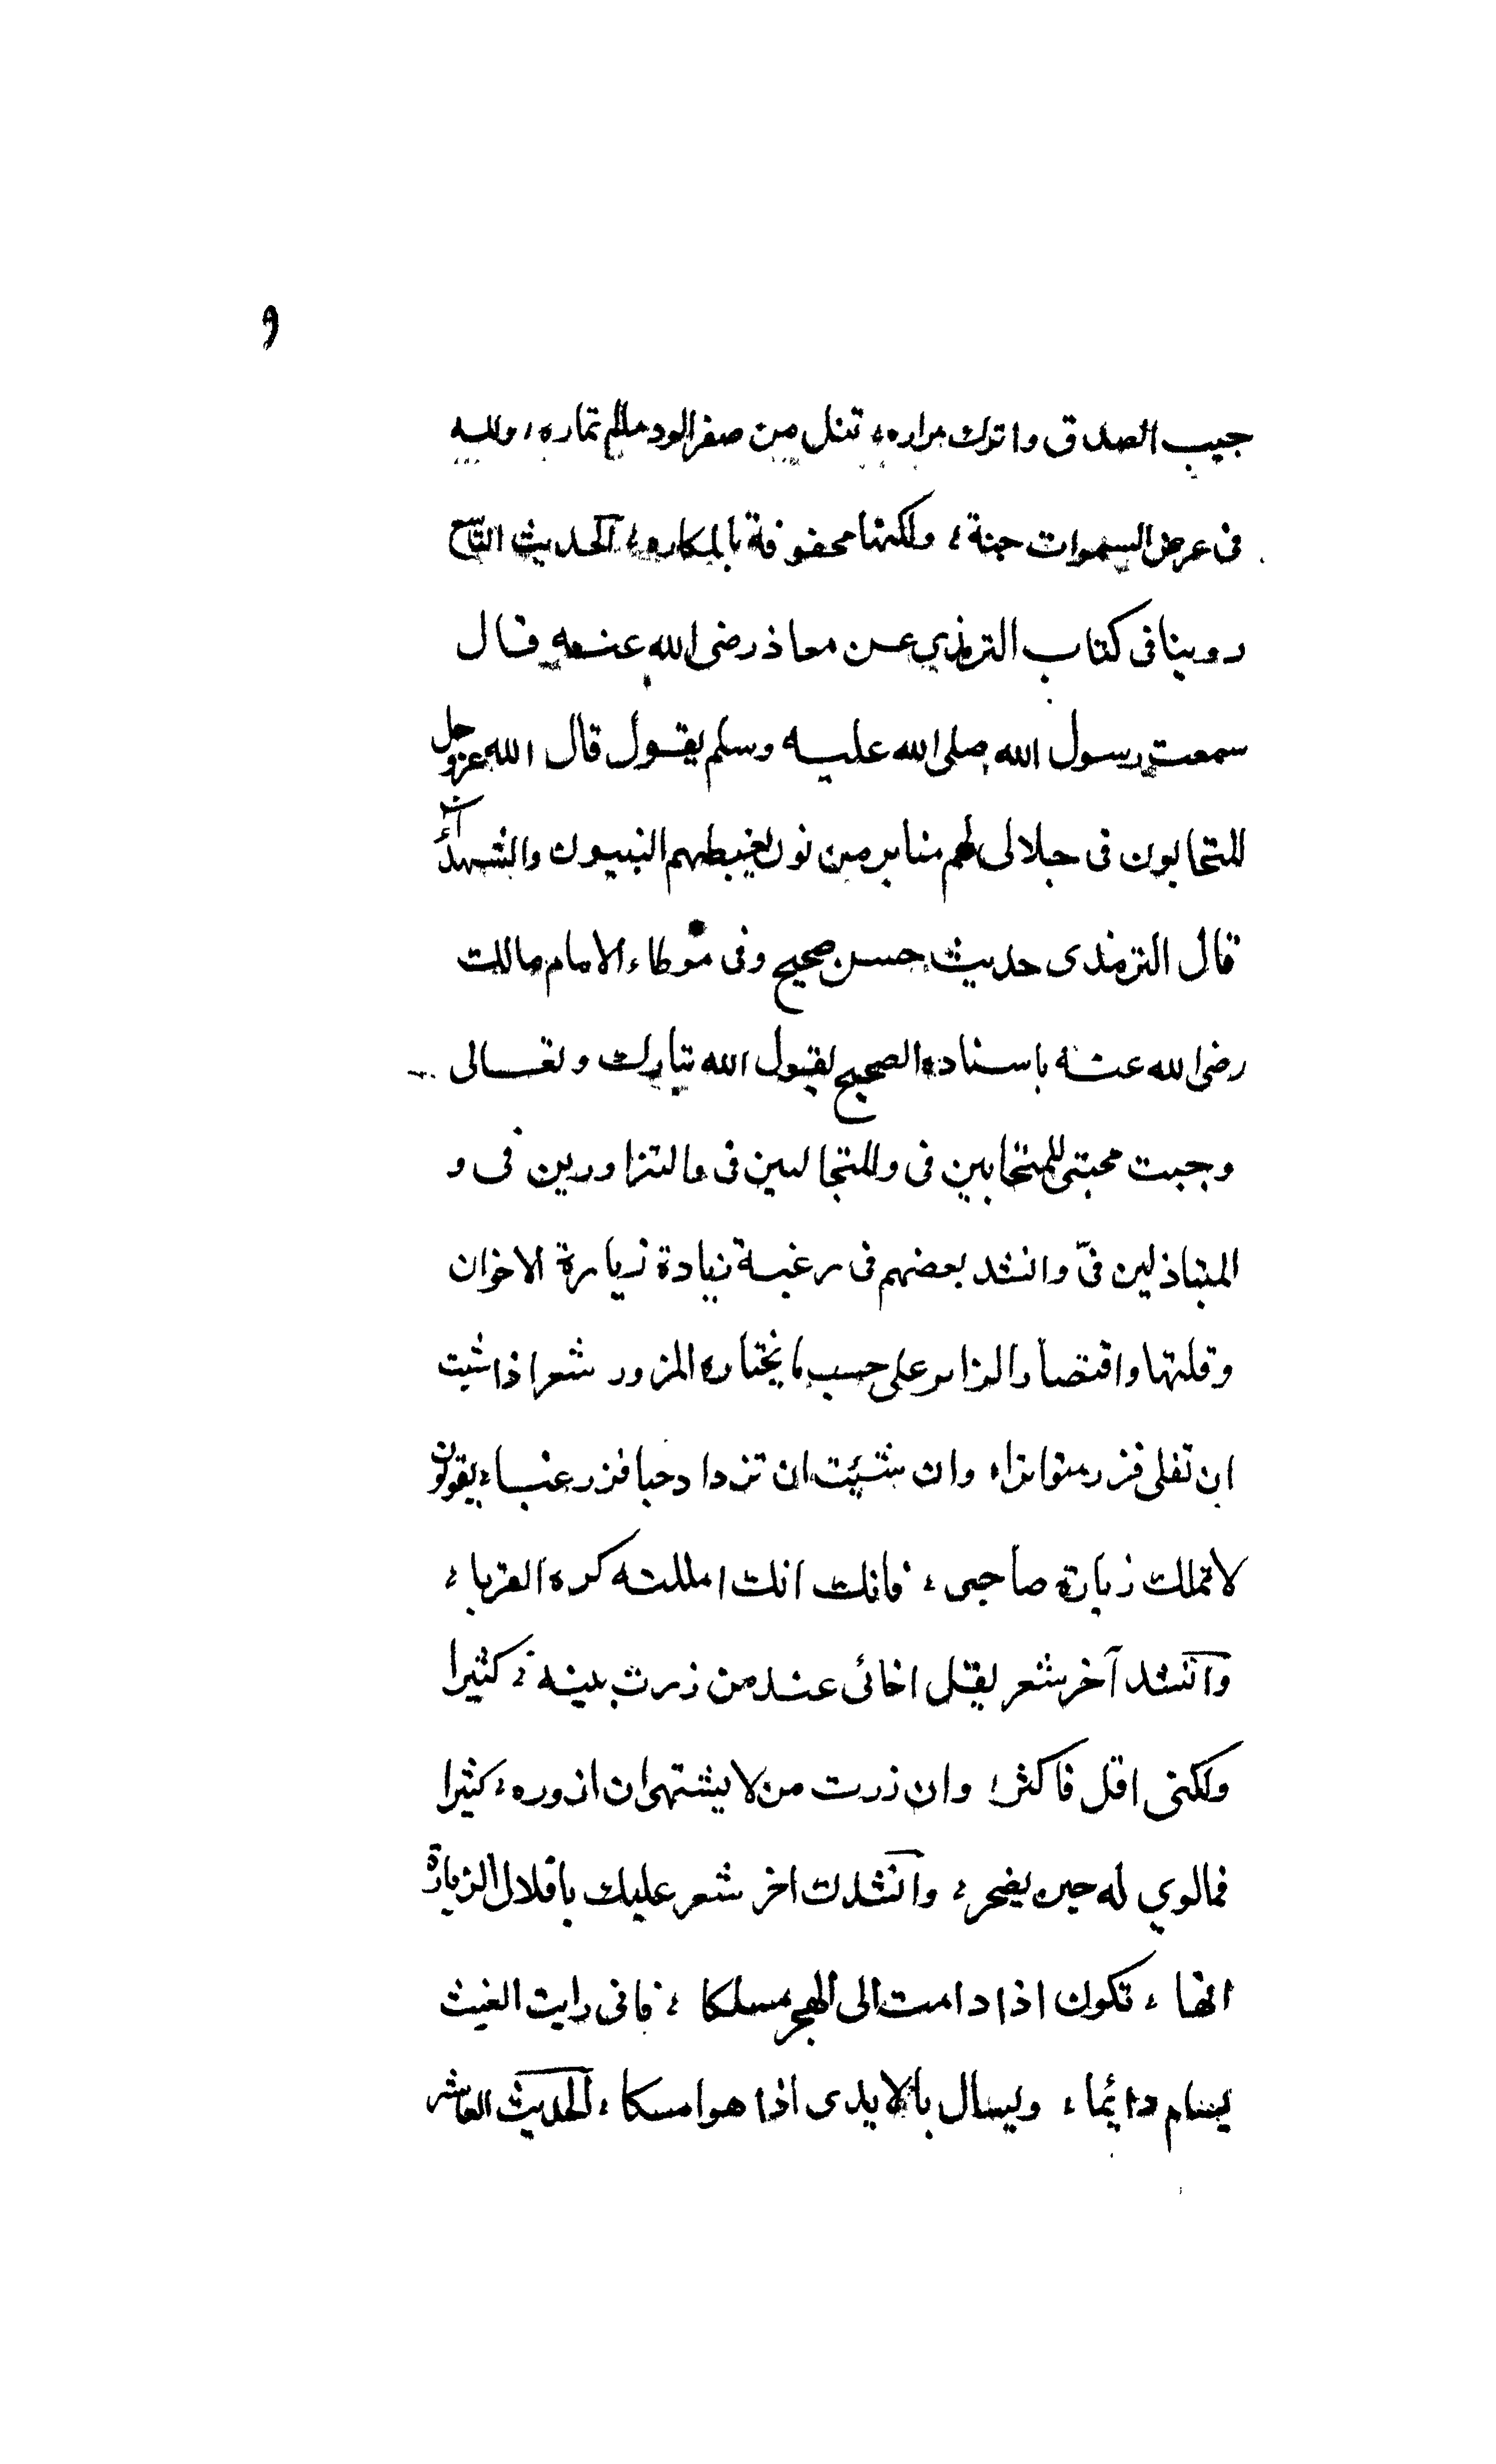 ٩
جيب الصدق واترك مراره، تنل من صفر الود مالم تماره، ولله
فى عرض السموات جنة، ولكنها محفوفة بالمكاره، الحديث التاسع
روينا فى كتاب الترمذي عن معاذ رضى الله عنه قال
سمعت رسول الله صلى الله عليه وسلم يقول قال الله عز وجل
المتحابون فى جلالى لهم منابر من نور يغبطهم النبيون والشهداء
قال الترمذى حديث حسن صحيح وفى موطاء الامام مالك
رضى الله عنه باسناده الصحيح لقبول الله تبارك وتعالى
وجبت محبتى للمتحابين فى والمتجالسين فى والمتزاورين فى و
المتباذلين فىّ وانشد بعضهم فى رغبة زيادة زيارة الاخوان
وقلتها واقتصار الزاير على حسب ما يختاره المزور شعر اذا شيت
ان تقلى فزر متواترا، وان شئت ان تزداد حبا فزر غبا، يقولون
لا تملك زيارة صاحبى، فانك انك امللته كره القربا،
وانشد آخر شعر يقل اخائى عند من زرت بينه، كثيرا
ولكنى اقل فاكثر، وان زرت من لا يشتهى ان ازوره، كثيرا
فمالوي له حين يضجر، وانشدت اخر شعر عليك باقلال الزيارة
انها، تكون اذا دامت الى الهجر مسلكا، فانى رايت الغيث
يسام دائما، ويسال بالايدى اذا هو امسكا، الحديث العاشر